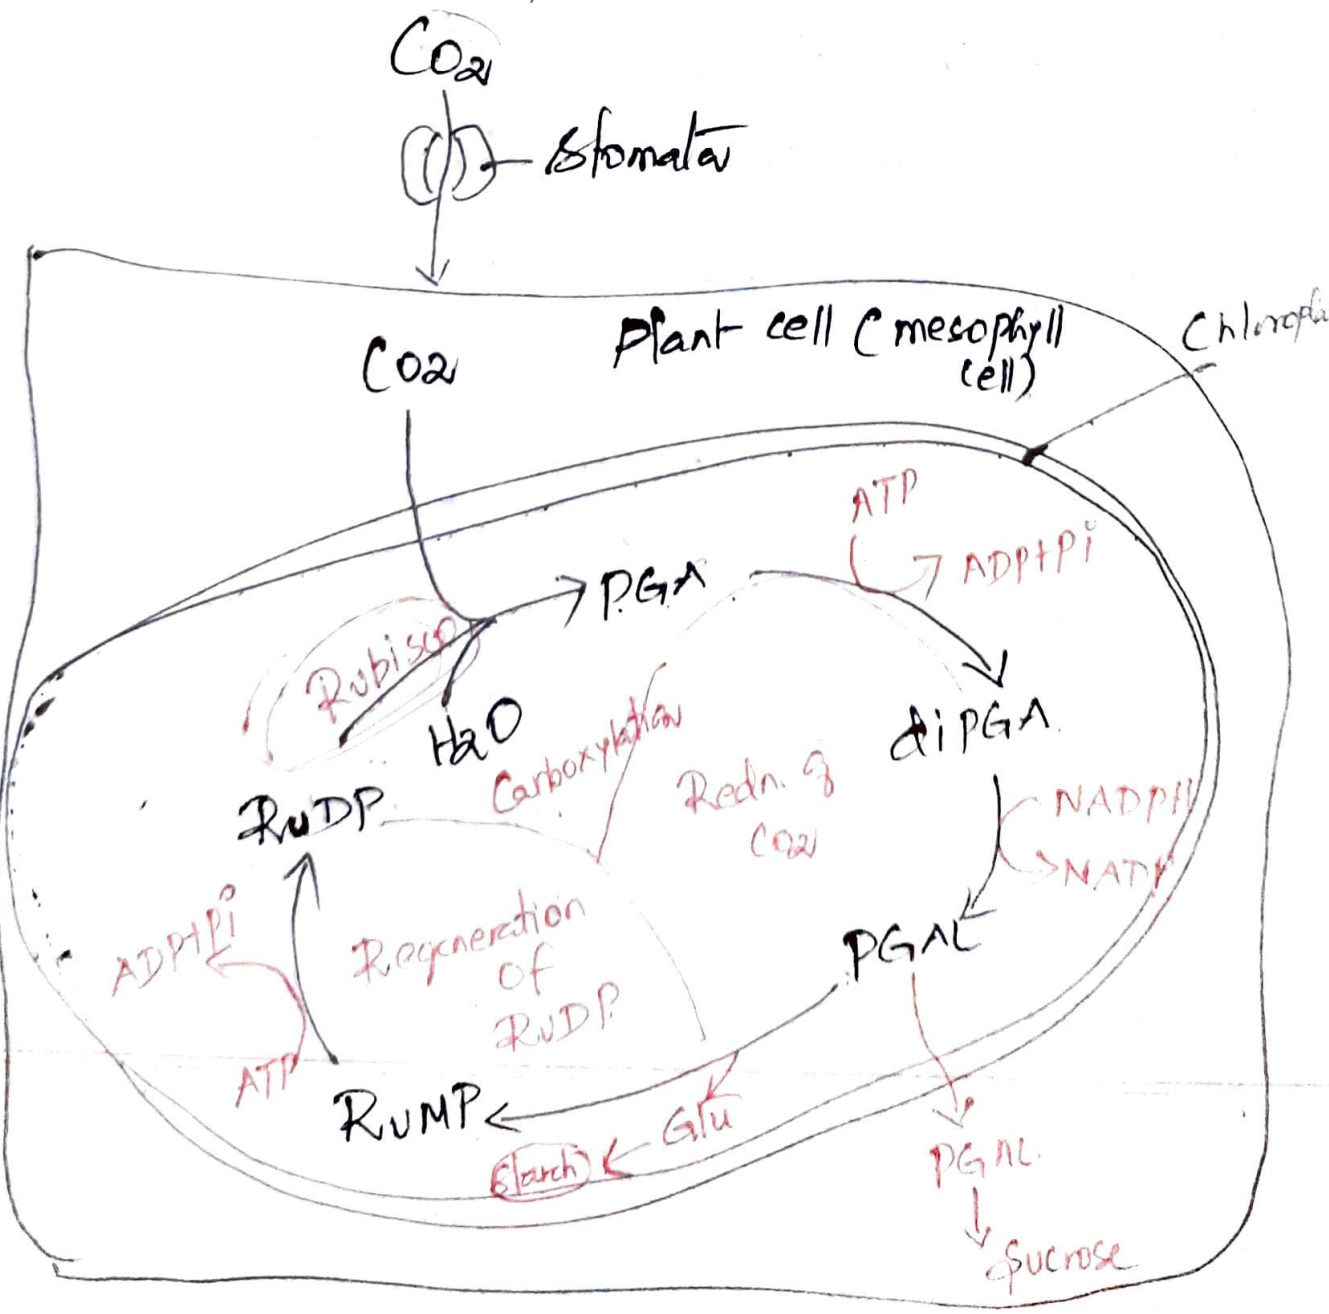 CO2
Stomata
Plant cell (mesophyll
cell)
CO2
ATP
ADP+Pi
PGA
Rubisco
H2O
Carboxylation
diPGA
Redn. of
CO2
NADPH
NADP
RuDP
ADP+Pi
Regeneration
of
RuDP
PGAL
ATP
RuMP
Glu
Starch
PGAL
Sucrose